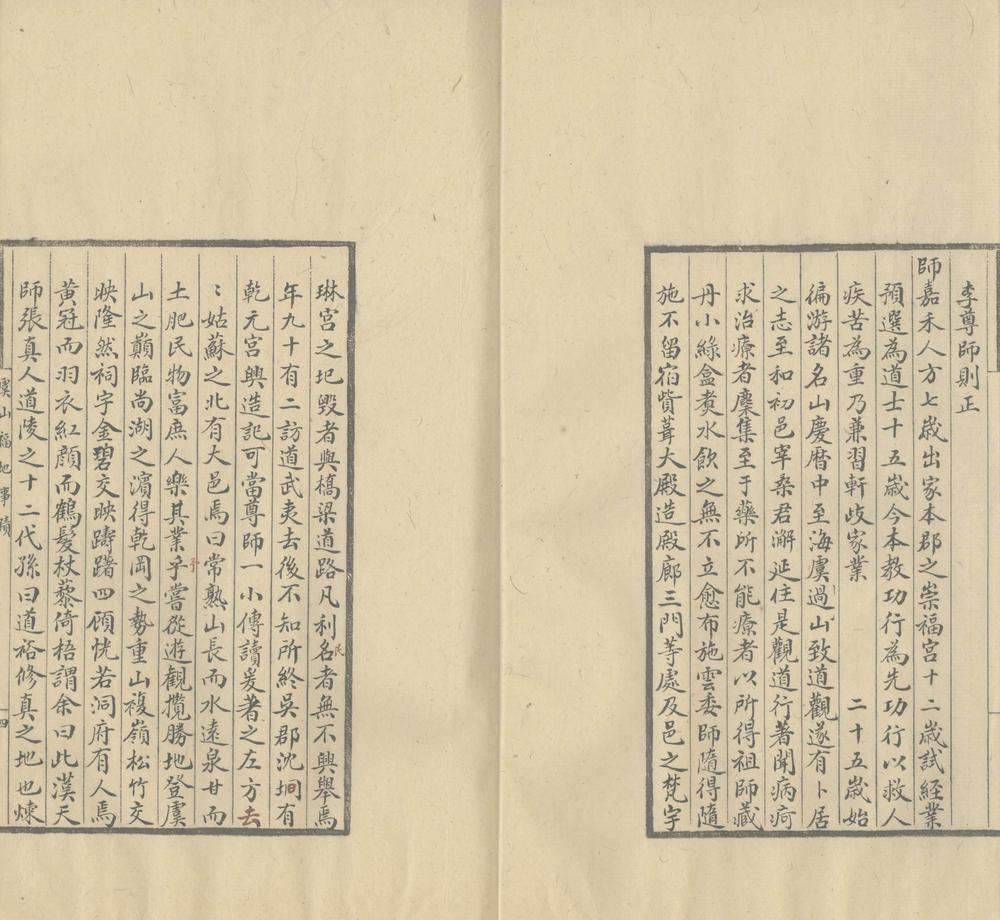 李尊師則正
師嘉禾人方七歲出家本郡之崇福宮十二歲試経業
預選為道士十五歲今本教功行為先功行以救人
疾苦為重乃兼習軒歧家業 二十五歲始
徧游諸名山慶曆中至海虞過山致道觀遂有卜居
之志至和初邑宰桑君澥延住是觀道行著聞病疴
求治療者麇集至于藥所不能療者以所得祖師藏
丹小綠盒煑水飲之無不立愈布施雲委師隨得隨
施不留宿貲葺大殿造殿廊三門等處及邑之梵宇
琳宮之圯毀者與橋梁道路凡利名者無不興舉焉
民
年九十有二訪道武夷去後不知所終吳郡沈坰有
乾元宮興造記可當尊師一小傳讀爰著之左方去
〻姑蘇之北有大邑焉曰常熟山長而水遠泉甘而
土肥民物富庶人樂其業乎嘗從遊觀攬勝地登虞
予
山之巔臨尚湖之濵得乾岡之勢重山複嶺松竹交
映隆然祠宇金碧交映躊躇四顧恍若洞府有人焉
黃冠而羽衣紅顏而鶴髮杖藜倚梧謂余曰此漢天
師張真人道陵之十二代孫曰道裕修真之地也煉
虞山福地事蹟
四